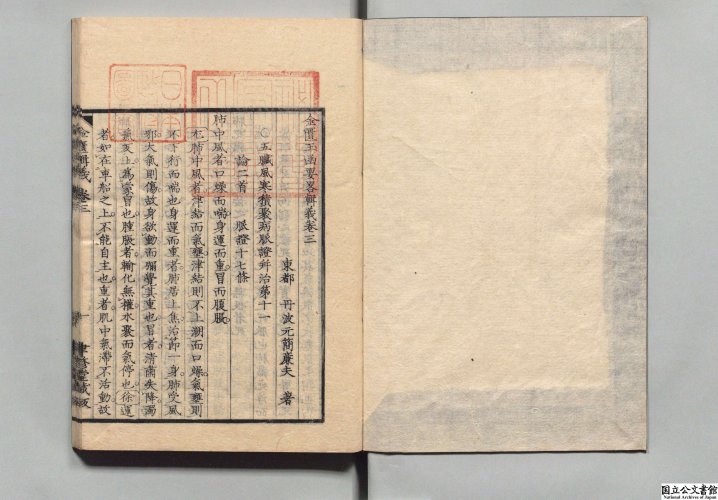 金匱玉函要畧輯義卷三
東都 丹波元簡廉夫 著
○五臟風寒積聚病脈證幷治第十一
論二首 脈證十七條
肺中風者口燥而喘身運而重冒而腫脹
肺中風者津結而氣壅津結則不上潮而口燥氣壅則
不下行而喘也身運而重者肺居上焦治節一身肺受風
邪大氣則傷故身欲動而彌覺其重也冒者清肅失降濁
氣反上爲蒙冒也腫脹者輸化無權水聚而氣停也徐運
者如在車船之上不能自主也重者肌中氣滯不活動故
金匱輯義 卷三
一
聿修堂藏版
国立公文書館
National Archives of Japan